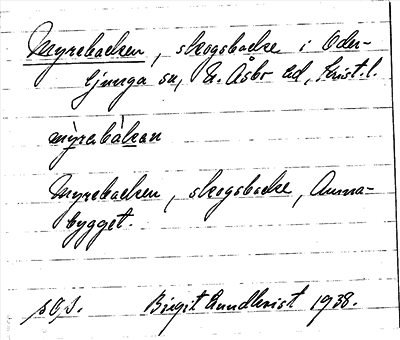 Myrebacken, skogsbacke i Oder-
ljunga sn, N. Åsbo hd, Krist. l.
mỳrebàkan
Myrebacken, skogsbacke, Anna-
bygget.
Birgit Lundkvist 1938.